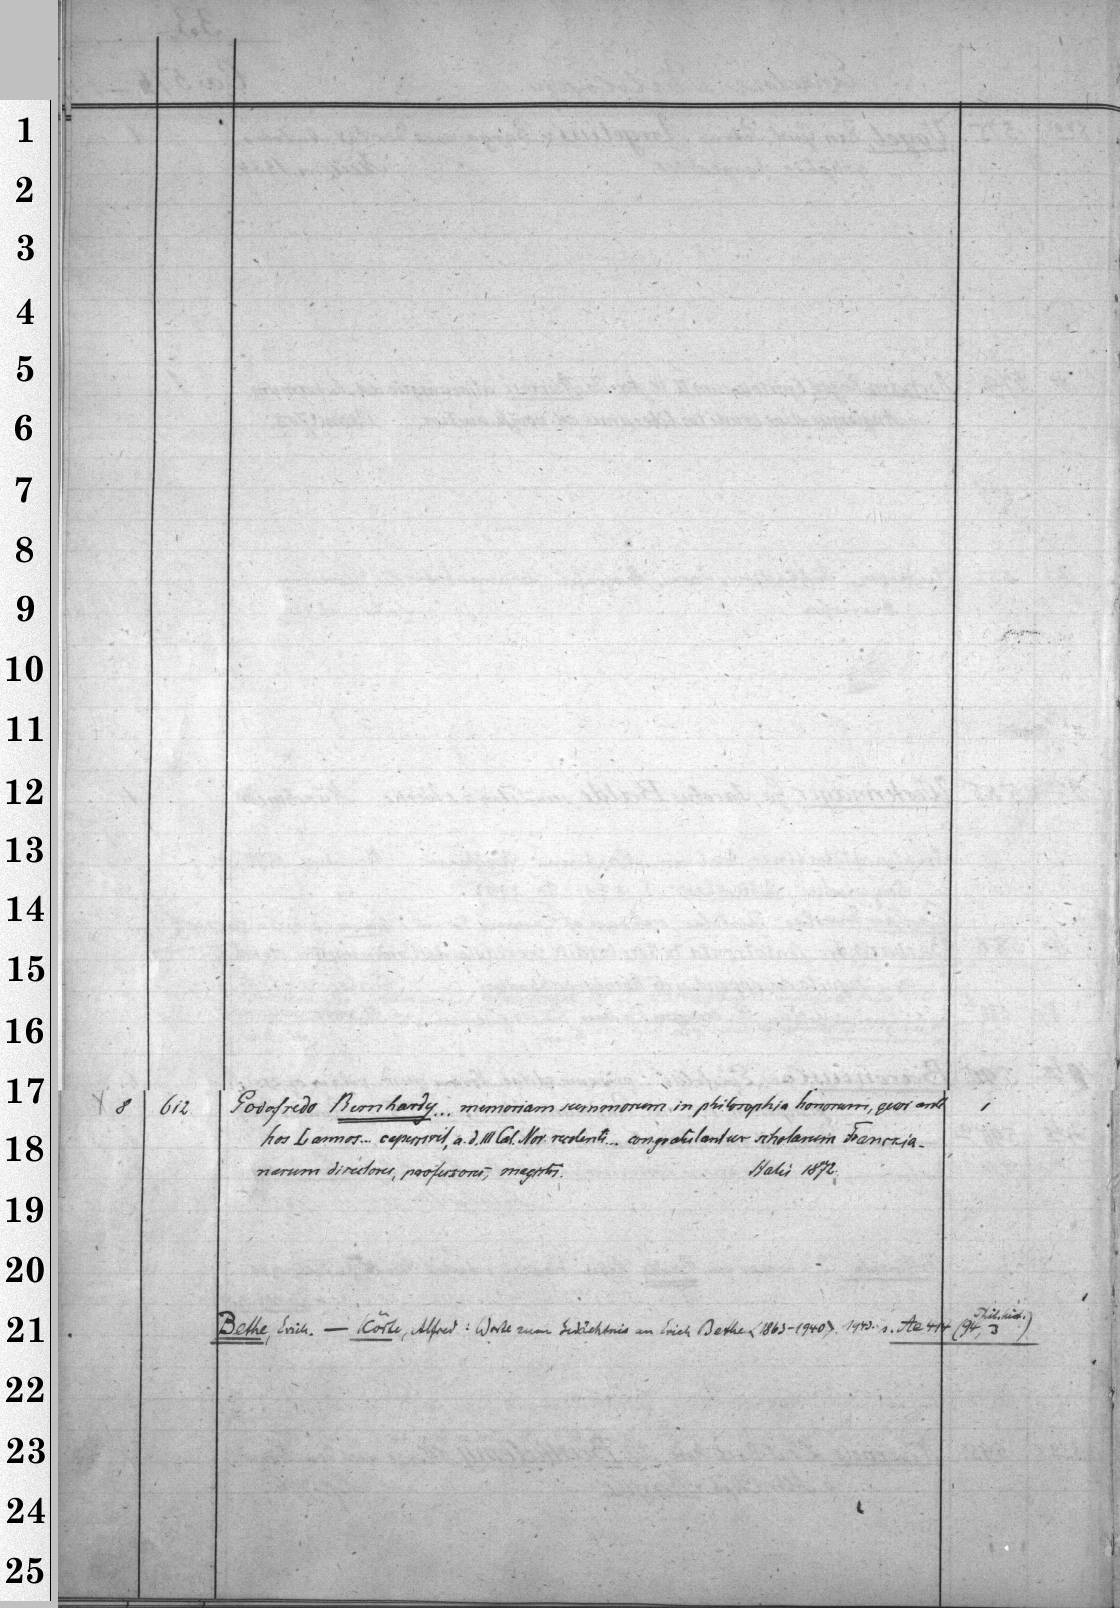 1
2
3
4
5
6
7
8
9
10
11
12
13
14
15
16
17
8 612 Godofredo Bernhardy... memoriam summorum in philosophia honorum, quos ante 1
18
hos L annos... capessivit, a. d. III Cal. Nov. recolenti... congratulantur scholarum Franckia-
narum directores, professores, magistri. Halis 1872.
19
20
21
Bethe, Erich. — Körte, Alfred: Worte zum Gedächtnis an Erich Bethe <1863-1940>. 1943. s. Ae 414 (94, 3)
22
23
24
25